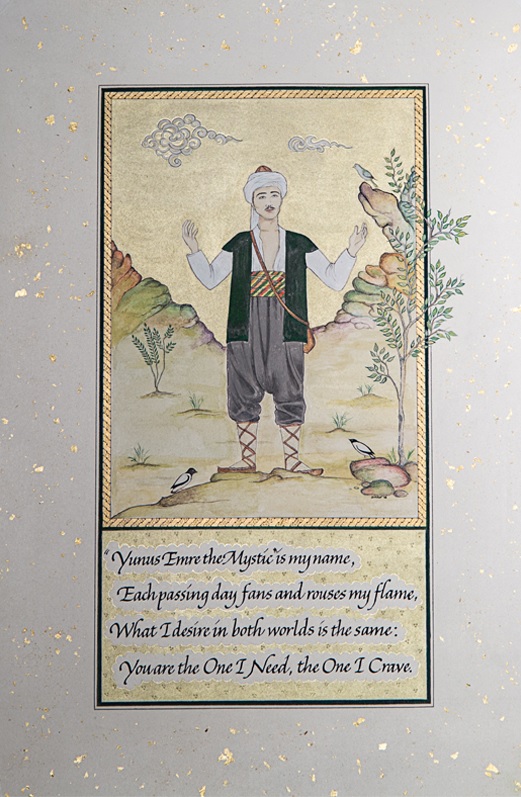 "Yunus Emre the Mystic" is my name,
Each passing day fans and rouses my flame,
What I desire in both worlds is the same:
You are the One I Need, the One I Crave.